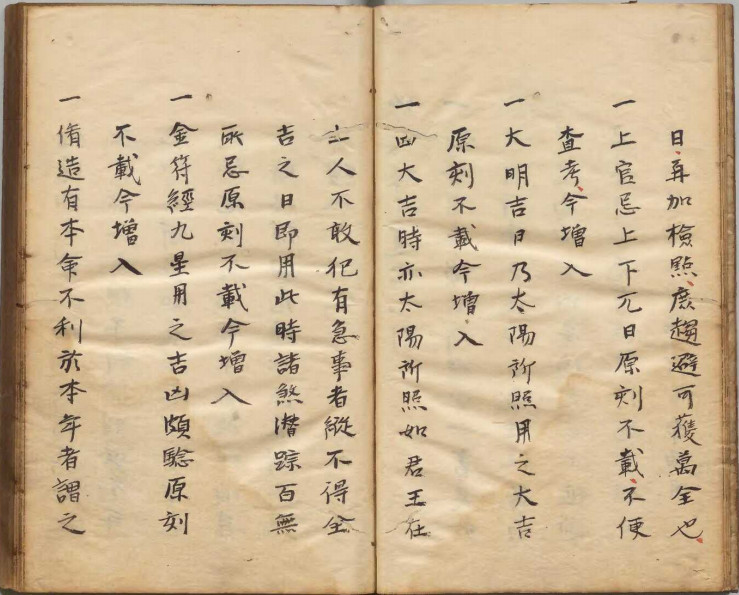 日再加檢點庶趨避可獲萬全也
一上官忌上下兀日原刻不載不便
查考今增入
一大明吉日乃太陽所照用之大吉
原刻不載今增入
一凶大吉時亦太陽所照如君王在
上人不敢犯有急事者縱不得全
吉之日即用此時諸煞潛踪百無
所忌原刻不載今增入
一金符經九星用之吉凶頗驗原刻
不載今增入
一脩造有本命不利於本年者謂之